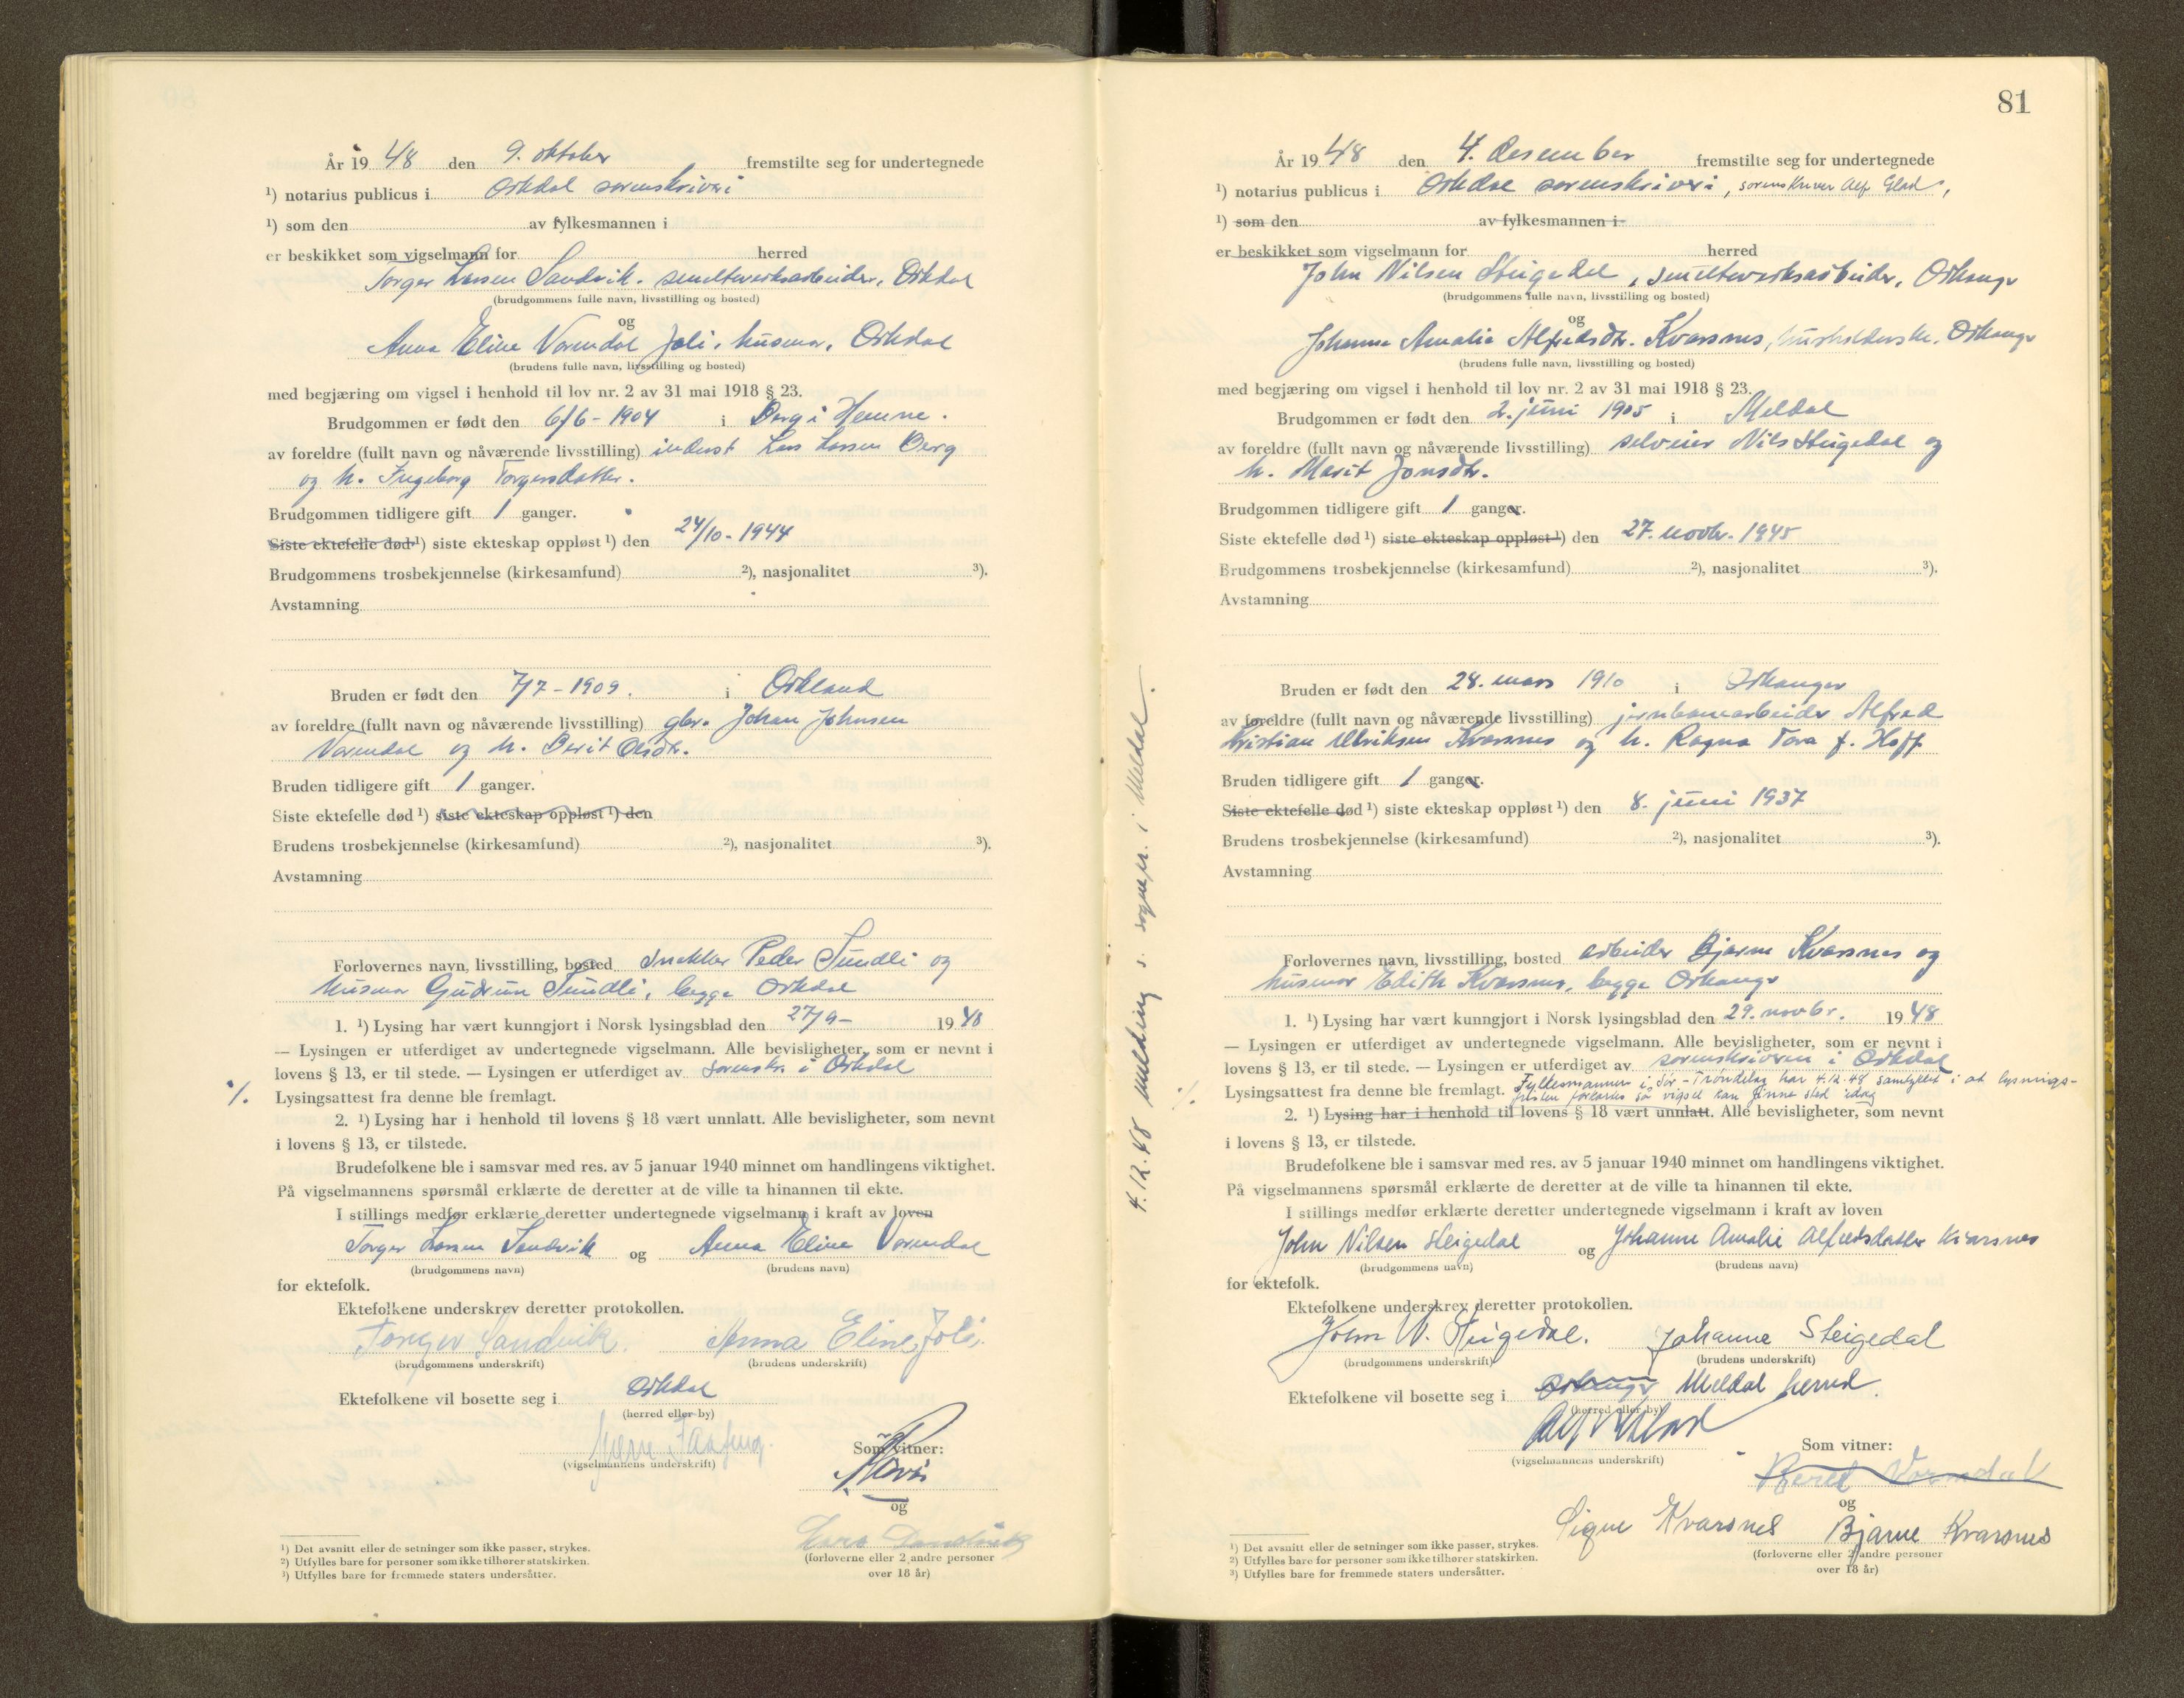 År 1948 den 9. oktober fremstilte seg for undertegnede
¹) notarius publicus i Orkdal sorenskriveri
¹) som den av fylkesmannen i
er beskikket som vigselmann for herred
Torger Larsen Sandvik, smelteverksarbeider, Orkdal
(brudgommens fulle navn, livsstilling og bosted)
og
Anna Eline Vormdal Joli, husmor, Orkdal
(brudens fulle navn, livsstilling og bosted)
med begjæring om vigsel i henhold til lov nr. 2 av 31 mai 1918 § 23.
Brudgommen er født den 6/6 - 1904 i Berg i Hemne.
av foreldre (fullt navn og nåværende livsstilling) inderst Lars Larsen Berg
og h. Ingeborg Torgersdatter.
Brudgommen tidligere gift 1 ganger.
Siste ektefelle død ¹) siste ekteskap oppløst ¹) den 24/10 - 1944
Brudgommens trosbekjennelse (kirkesamfund) ²), nasjonalitet ³).
Avstamning
Bruden er født den 7/7 - 1909. i Orkland
av foreldre (fullt navn og nåværende livsstilling) gbr. Johan Johnsen
Vormdal og h. Berit Olsdtr.
Bruden tidligere gift 1 ganger.
Siste ektefelle død ¹) siste ekteskap oppløst ¹) den
Brudens trosbekjennelse (kirkesamfund) ²), nasjonalitet ³).
Avstamning
Forlovernes navn, livsstilling, bosted snekker Peder Sundli og
husmor Gudrun Sundli, begge Orkdal
1. ¹) Lysing har vært kunngjort i Norsk lysingsblad den 27/9 - 1948
— Lysingen er utferdiget av undertegnede vigselmann. Alle bevisligheter, som er nevnt i
lovens § 13, er til stede. — Lysingen er utferdiget av sorenskr. i Orkdal
·/. Lysingsattest fra denne ble fremlagt.
2. ¹) Lysing har i henhold til lovens § 18 vært unnlatt. Alle bevisligheter, som nevnt
i lovens § 13, er tilstede.
Brudefolkene ble i samsvar med res. av 5 januar 1940 minnet om handlingens viktighet.
På vigselmannens spørsmål erklærte de deretter at de ville ta hinannen til ekte.
I stillings medfør erklærte deretter undertegnede vigselmann i kraft av loven
Torger Larsen Sandvik og Anna Eline Vormdal
(brudgommens navn) (brudens navn)
for ektefolk.
Ektefolkene underskrev deretter protokollen.
Torger Sandvik. Anna Eline Joli.
(brudgommens underskrift) (brudens underskrift)
Ektefolkene vil bosette seg i Orkdal
(herred eller by)
(vigselmannens underskrift) Som vitner:
og
Lars
(forloverne eller 2 andre personer
over 18 år)
¹) Det avsnitt eller de setninger som ikke passer, strykes.
²) Utfylles bare for personer som ikke tilhører statskirken.
³) Utfylles bare for fremmede staters undersåtter.
4.12.48 melding s. sognepr. i Meldal.
81
År 1948 den 4. desember fremstilte seg for undertegnede
¹) notarius publicus i Orkdal sorenskriveri, sorenskriver Alf Glad,
¹) som den av fylkesmannen i
er beskikket som vigselmann for herred
John Nilsen Steigedal, smelteverksarbeider, Orkanger
(brudgommens fulle navn, livsstilling og bosted)
og
Johanne Amalie Alfredsdtr. Kvarsnes, husholderske, Orkanger
(brudens fulle navn, livsstilling og bosted)
med begjæring om vigsel i henhold til lov nr. 2 av 31 mai 1918 § 23.
Brudgommen er født den 2. juni 1905 i Meldal
av foreldre (fullt navn og nåværende livsstilling) selveier Nils Steigedal og
h. Marit Jonsdtr.
Brudgommen tidligere gift 1 ganger.
Siste ektefelle død ¹) siste ekteskap oppløst ¹) den 27. novbr. 1945
Brudgommens trosbekjennelse (kirkesamfund) ²), nasjonalitet ³).
Avstamning
Bruden er født den 28. mars 1910 i Orkanger
av foreldre (fullt navn og nåværende livsstilling) jernbanearbeider Alfred
Kristian Ulriksen Kvarsnes og h. Ragna Tora f. Hoff
Bruden tidligere gift 1 ganger.
Siste ektefelle død ¹) siste ekteskap oppløst ¹) den 8. juni 1937
Brudens trosbekjennelse (kirkesamfund) ²), nasjonalitet ³).
Avstamning
Forlovernes navn, livsstilling, bosted arbeider Bjarne Kvarsnes og
husmor Edith Kvarsnes, begge Orkanger
1. ¹) Lysing har vært kunngjort i Norsk lysingsblad den 29. novbr. 1948
— Lysingen er utferdiget av undertegnede vigselmann. Alle bevisligheter, som er nevnt i
lovens § 13, er til stede. — Lysingen er utferdiget av sorenskriveren i Orkdal
·/. Lysingsattest fra denne ble fremlagt. Fylkesmannen i Sør-Trøndelag har 4.12.48 samtykket i at lysnings-
fristen forkortes så vigsel kan finne sted idag
2. ¹) Lysing har i henhold til lovens § 18 vært unnlatt. Alle bevisligheter, som nevnt
i lovens § 13, er tilstede.
Brudefolkene ble i samsvar med res. av 5 januar 1940 minnet om handlingens viktighet.
På vigselmannens spørsmål erklærte de deretter at de ville ta hinannen til ekte.
I stillings medfør erklærte deretter undertegnede vigselmann i kraft av loven
John Nilsen Steigedal og Johanne Amalie Alfredsdatter Kvarsnes
(brudgommens navn) (brudens navn)
for ektefolk.
Ektefolkene underskrev deretter protokollen.
John N. Steigedal. Johanne Steigedal
(brudgommens underskrift) (brudens underskrift)
Ektefolkene vil bosette seg i Orkanger Meldal herred.
(herred eller by)
Alf Glad
(vigselmannens underskrift) Som vitner:
Bered Vormdal
og
Signe Kvarsnes Bjarne Kvarsnes
(forloverne eller 2 andre personer
over 18 år)
¹) Det avsnitt eller de setninger som ikke passer, strykes.
²) Utfylles bare for personer som ikke tilhører statskirken.
³) Utfylles bare for fremmede staters undersåtter.